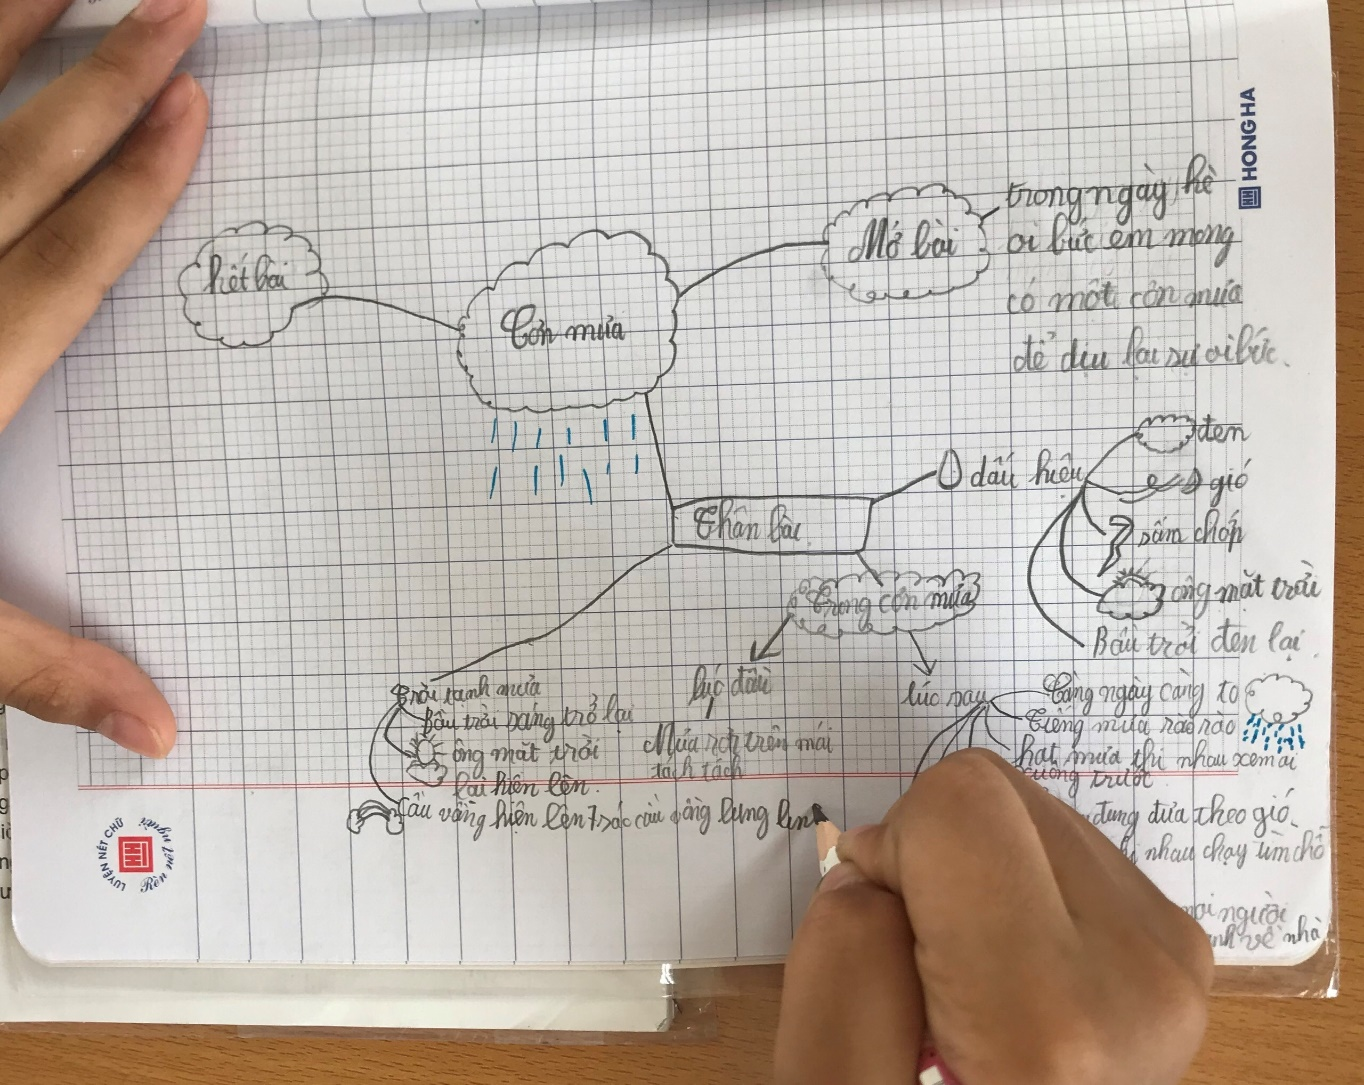 HONG HA
kết bài
Cơn mưa
Mở bài
trong ngày hè
oi bức em mong
có một cơn mưa
để dịu lại sự oi bức.
Thân bài
dấu hiệu
đen
gió
sấm chớp
ông mặt trời
Bầu trời đen lại
Trong cơn mưa
lúc đầu
Mưa rơi trên mái
tách tách
lúc sau
Càng ngày càng to
Tiếng mưa rào rào
hạt mưa thi nhau xem ai
xuống trước
đung đưa theo gió.
nhau chạy tìm chỗ
mọi người
về nhà
Trời tạnh mưa
Bầu trời sáng trở lại
ông mặt trời
lại hiện lên.
Cầu vồng hiện lên 7 sắc cầu vồng lung linh
LUYỆN NÉT CHỮ
Rèn nết người